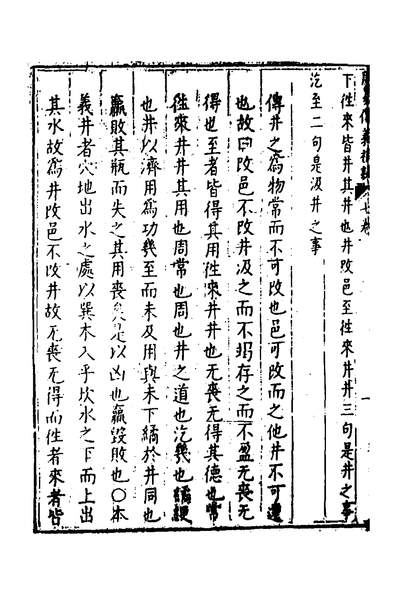 下徃來皆井其井也井改邑至徃來井井三句是井之事
汔至二句是汲井之事
傳井之爲物常而不可改也邑可改而之他井不可遷
也故曰改邑不改井汲之而不竭存之而不盈无喪无
得也至者皆得其用徃來井井也无喪无得其德也常
徃來井井其用也周常也周也井之道也汔幾也繘綆
也井以濟用爲功幾至而未及用與未下繘於井同也
羸敗其瓶而失之其用喪矣是以凶也羸毀敗也○本
義井者穴地出水之處以巽木入乎坎水之下而上出
其水故爲井改邑不改井故无喪无得而徃者來者皆